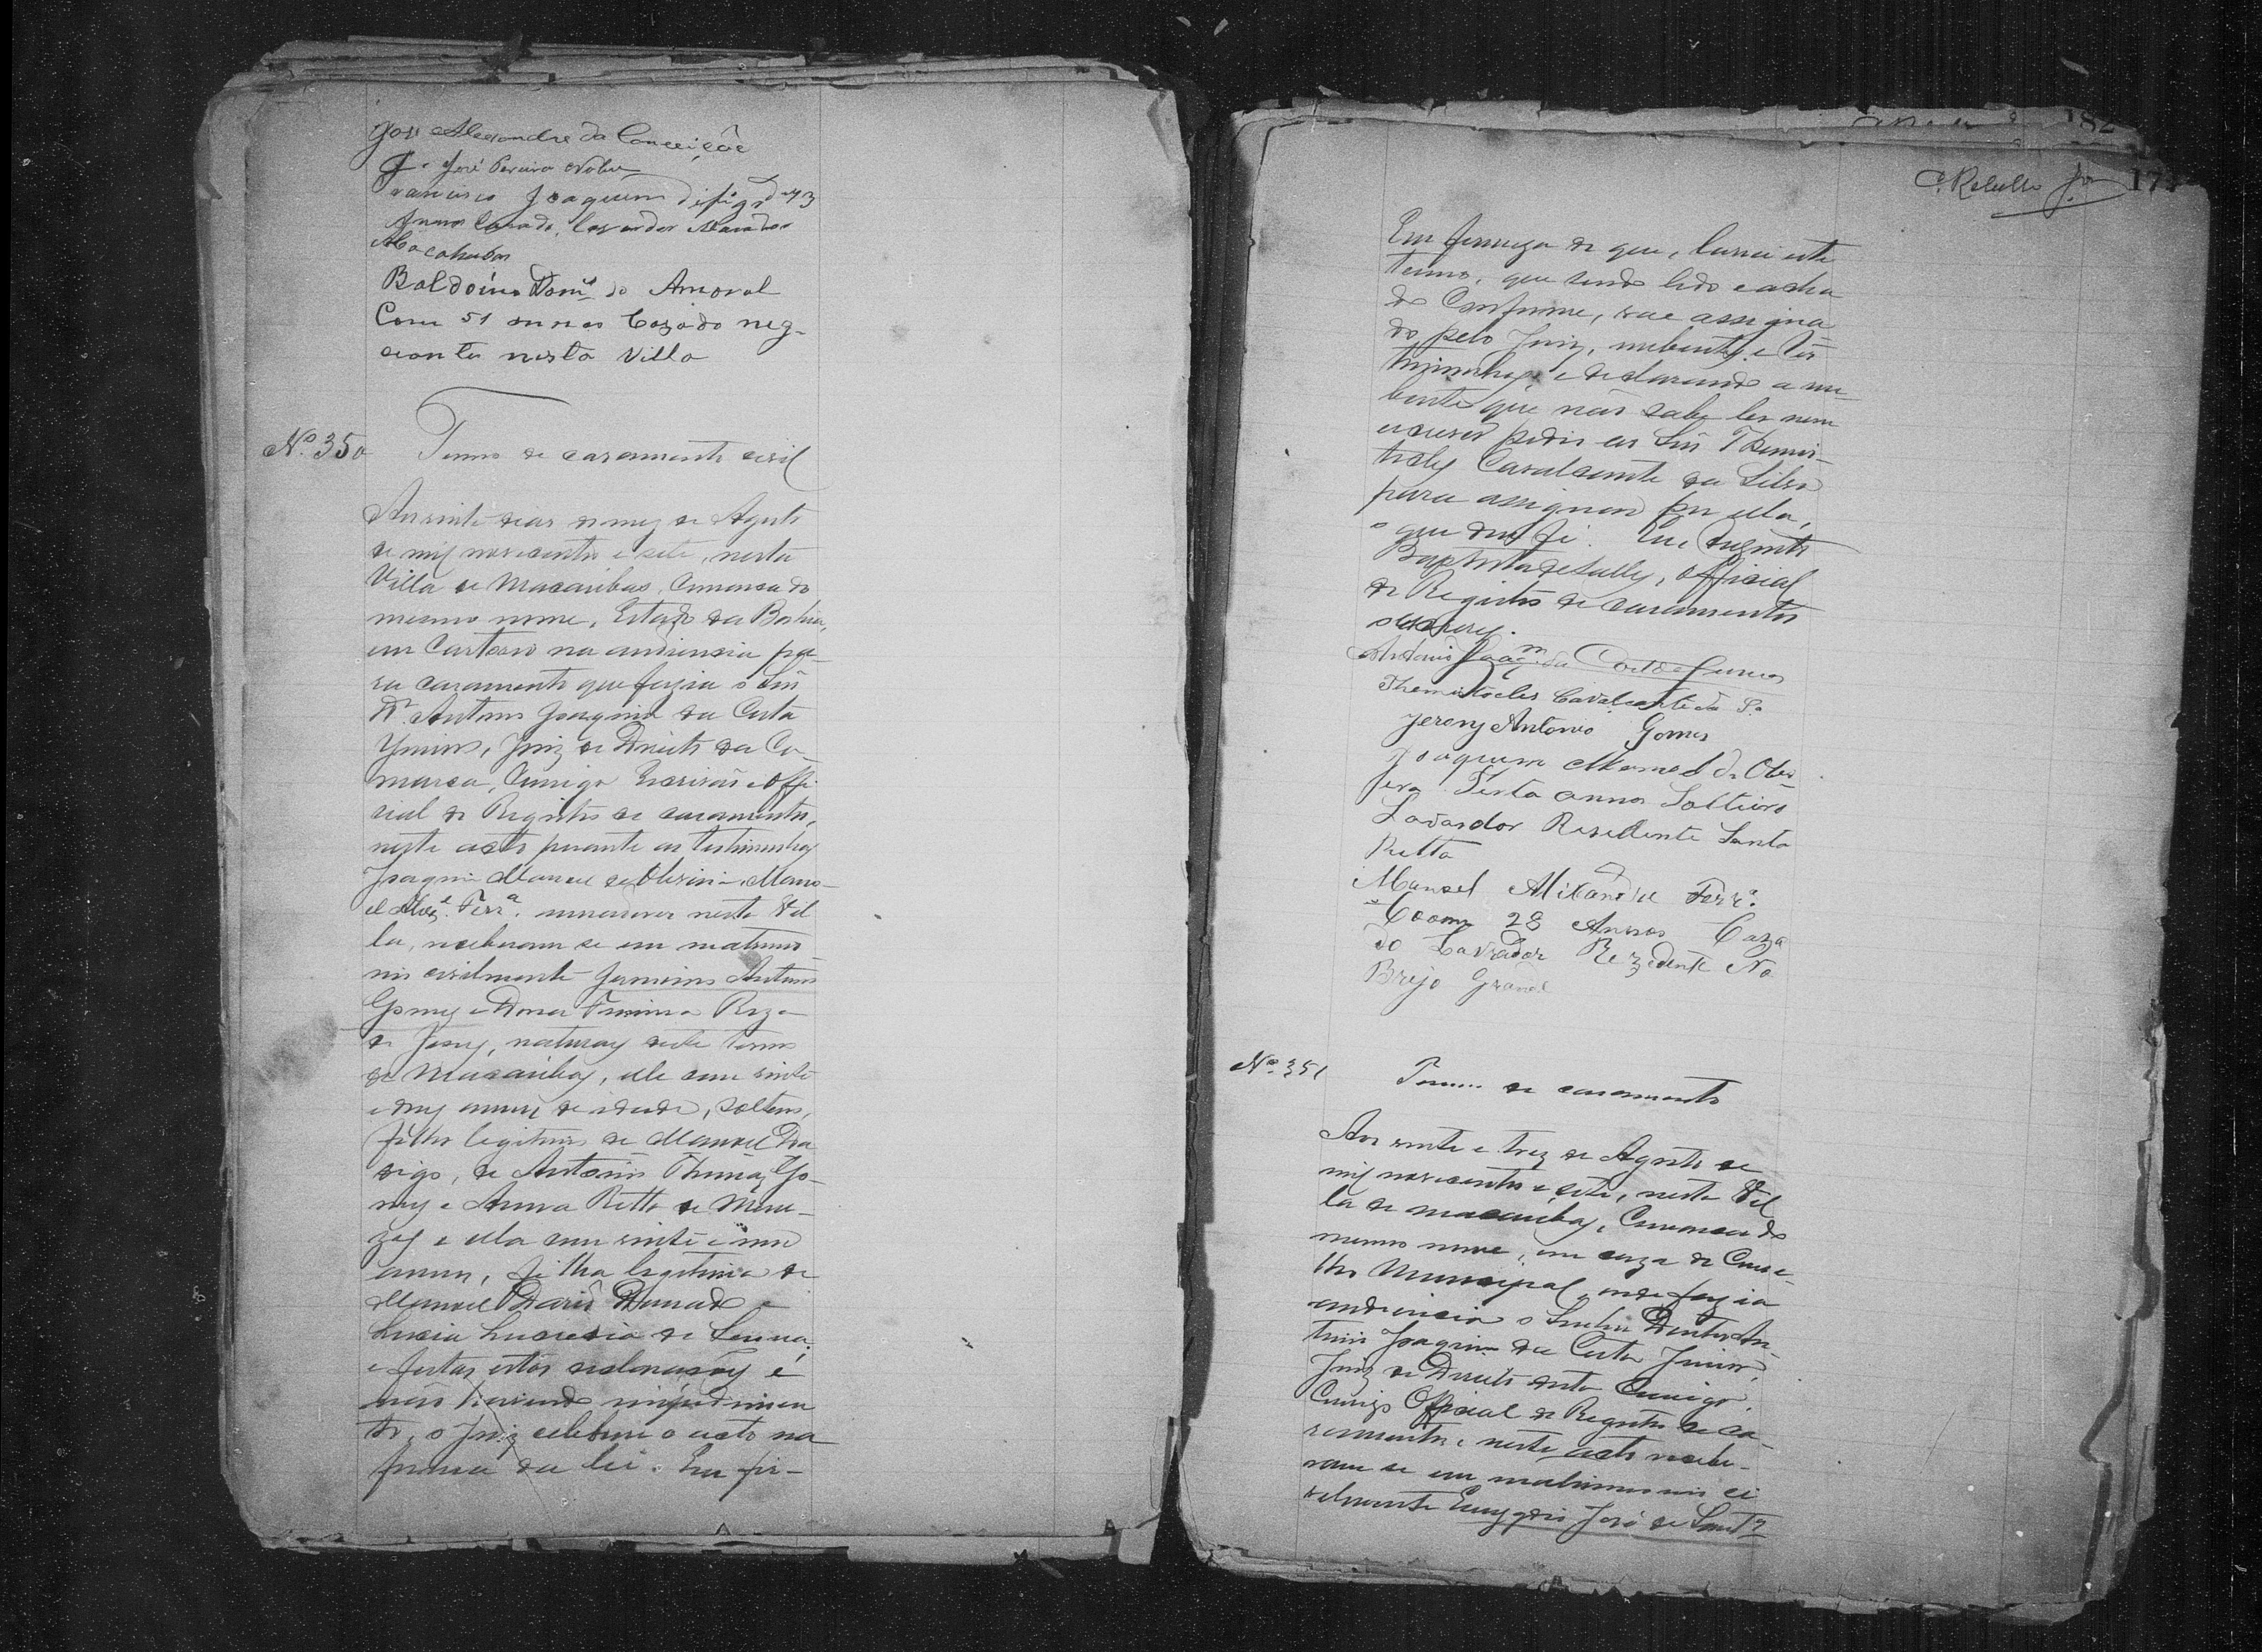 José Alexandre da Conceição
José Pereira Nobre
Francisco Joaquim de 43
annos Casado, Lavrador Morador
Macahubas
Baldoino Dom.s do Amaral
Com 51 annos Cazado neg-
ciante nesta Villa
Nº 350 Termo de casamento civil
Aos vinte dias do mez de Agosto
de mil novecentos e sete, nesta
Villa de Macaúbas, Comarca do
mesmo nome, Estado da Bahia,
em Cartorio na audiencia pa-
ra casamento que fazia o Snr
Dr. Antonio Joaquim da Costa
Junior, Juiz de Direito da Co-
marca, Comigo Escrivão e offi-
cial do Registro de casamentos,
neste acto perante as testimunhas
Joaquim Manoel de Oliveira, Mano-
el Alex.e Ferr.a moradores nesta Vil
la, receberam se em matrimo-
nio civilmente Antonio
Gomes e Dona Roza
de Jesus, naturaes deste termo
de Macaúbas, elle com vinte
e dous annos de idade, solteiro,
filho legitimo de Manoel 
digo, de Antonio Thomaz Go-
mes e Anna Ritta de Mene-
zes e ella com vinte e um
annos, filha legitima de
Manoel Dario Dourado e
Lucia Lucrecia de Senna;
e feitas estas declarações e
não havendo impedimen
to, o Juiz celebrou o acto na
forma da lei. Em fir-
C. Rebello Jor 17
182
Em firmeza do que, lavrei este
termo, que sendo lido e acha
do Conforme, vae assigna
do pelo Juiz, nubentes e tes
timunhas, e declarando a nu-
bente que não sabe ler nem
escrever pediu ao Snr Themis-
tocles Cavalcante da Silva
para assignar por ella,
o que dou fé. Eu, Augusto
Baptista de Salles, Official
do Registro de casamentos
o escrevy.
Antonio Joaq.m da Costa Junior
Themistocles Cavalcante da S.a
Jerony Antonio Gomes
Joaquim Manoel de Olev
jera Trinta annos Solteiro
Lavardor Resedente Santa
Ritta
Manoel Alixandre Ferr.a
Coom 28 Annos Caza
do Lavrador Rezedente No
Brejo Grande
Nº 351 Termo de casamento
Aos vinte e trez de Agosto de
mil novecentos e sete, nesta Vil
la de Macaubas, Comarca do
mesmo nome, em caza do Conce-
lho Municipal, onde fazia
audiencia o Senhor Doutor An-
tonio Joaquim da Costa Junior,
Juiz de Direito desta Comigo,
Comigo Official do Registro de ca-
samentos, neste acto recebe-
ram se em matrimonio ci
vilmente Emygdio José de Sant